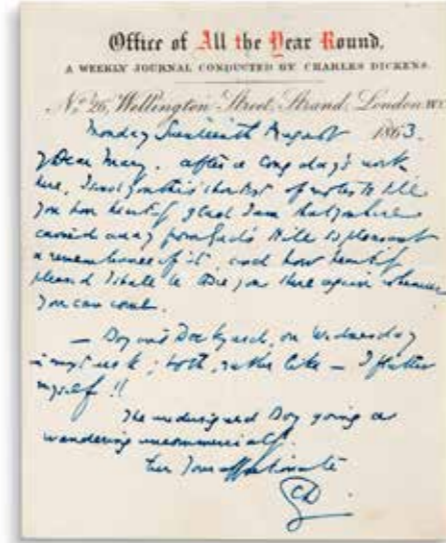 Office of All the Year Round,
A WEEKLY JOURNAL CONDUCTED BY CHARLES DICKENS.
No. 26, Wellington Street, Strand, London W.C.
Monday August 1863.
My Dear Mary. After a long day's work
here, I send you this shortest of notes to tell
you how heartily glad I am that you have
carried away from Gad's Hill so pleasant
a remembrance of it and how heartily
pleased I shall be to see you there again whenever
you can come.
— Boy and Dockyard, on Wednesday
in next week; both, rather like — I flatter
myself!!
The undersigned Boy going a
wandering uncommercially.
Ever Your affectionate
CD